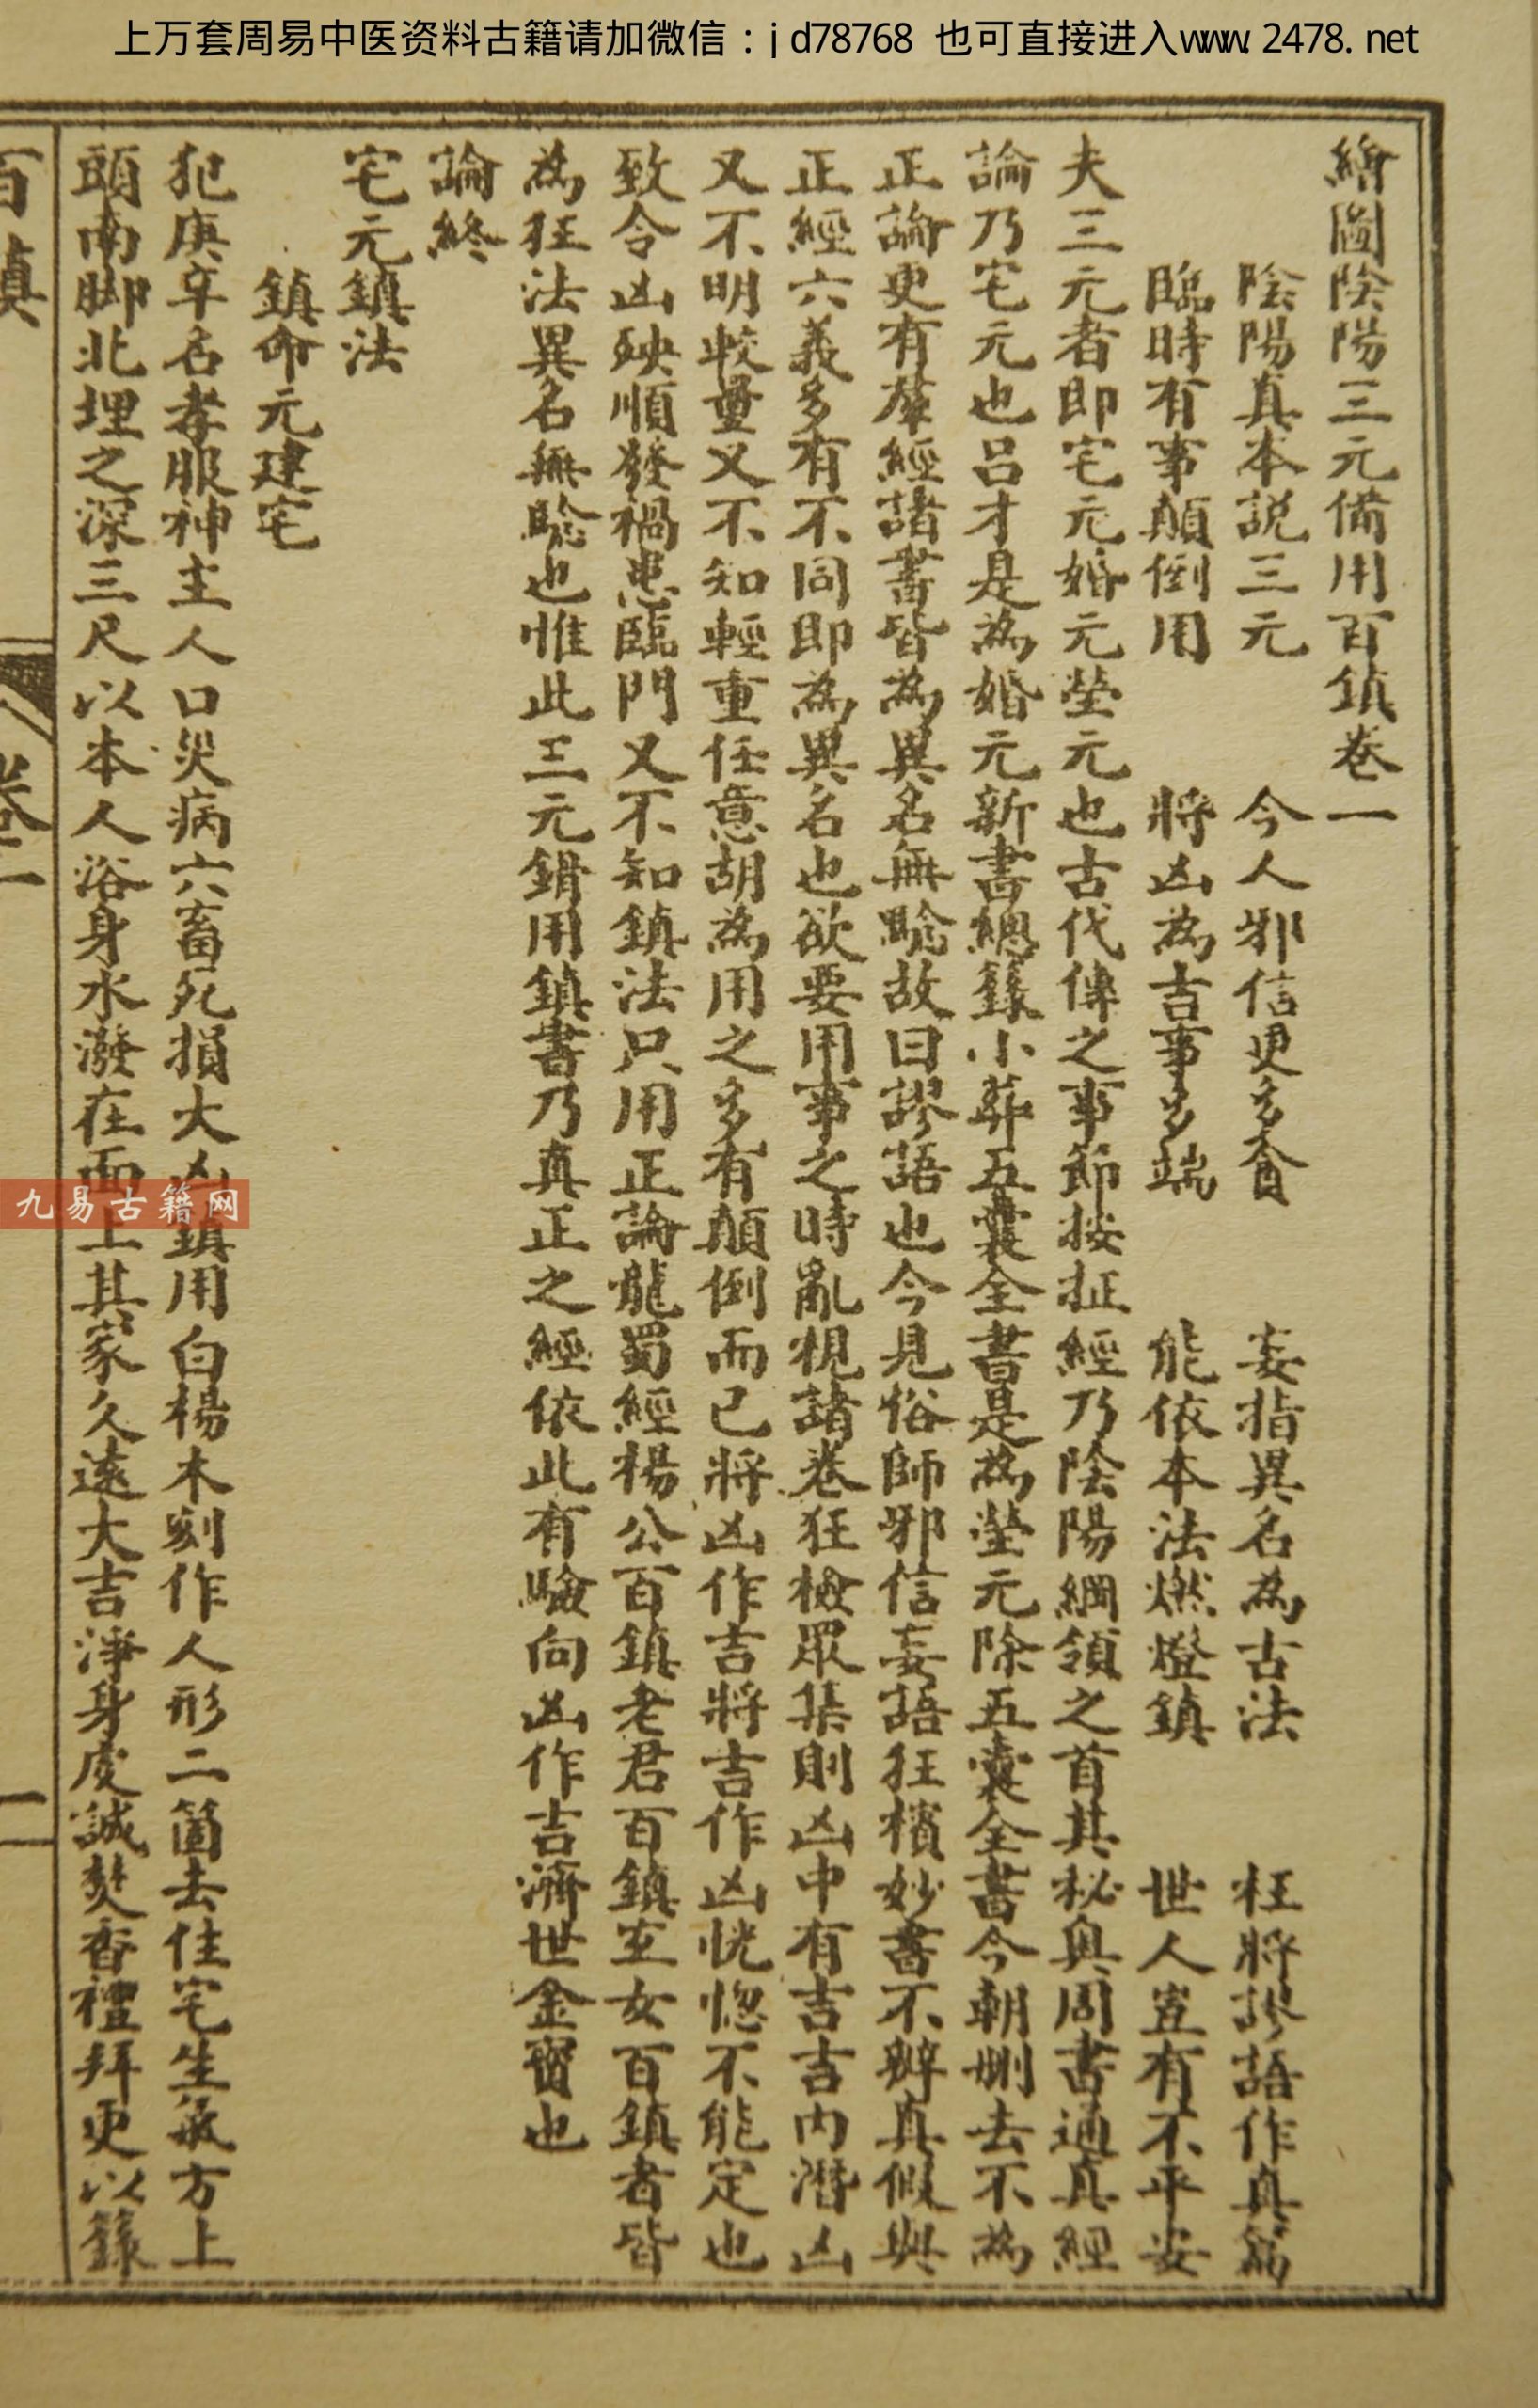 上万套周易中医资料古籍请加微信：jd78768 也可直接进入www.2478.net
繪圖陰陽三元備用百鎮卷一
陰陽真本説三元 今人邪信更多貪 妄指異名為古法 枉將謬語作真篇
臨時有事顛倒用 將凶為吉事多端 能依本法燃燈鎮 世人豈有不平安
夫三元者即宅元婚元塋元也古代傳之事節按証經乃陰陽綱領之首其秘奥周書通真經
論乃宅元也呂才是為婚元新書總錄小葬五囊全書是為塋元除五囊全書今朝刪去不為
正論更有羣經諸書皆為異名無騐故曰謬語也今見俗師邪信妄語狂檳妙書不辨真假與
正經六義多有不同即為異名也欲要用事之時亂視諸卷狂檢眾集則凶中有吉吉内潛凶
又不明較量又不知輕重任意胡為用之多有顛倒而已將凶作吉將吉作凶恍惚不能定也
致令凶殃順發禍患臨門又不知鎮法只用正論龍蜀經楊公百鎮老君百鎮玄女百鎮者皆
為狂法異名無騐也惟此三元錯用鎮書乃真正之經依此有驗向凶作吉濟世金寶也
論終
宅元鎮法
鎮命元建宅
犯庚辛名孝服神主人口災病六畜死損大凶鎮用白楊木刻作人形二箇去住宅生氣方上
頭南脚北埋之深三尺以本人浴身水潑在面上其家久遠大吉淨身虔誠焚香禮拜更以籙
百鎮 卷一 一
九易古籍网